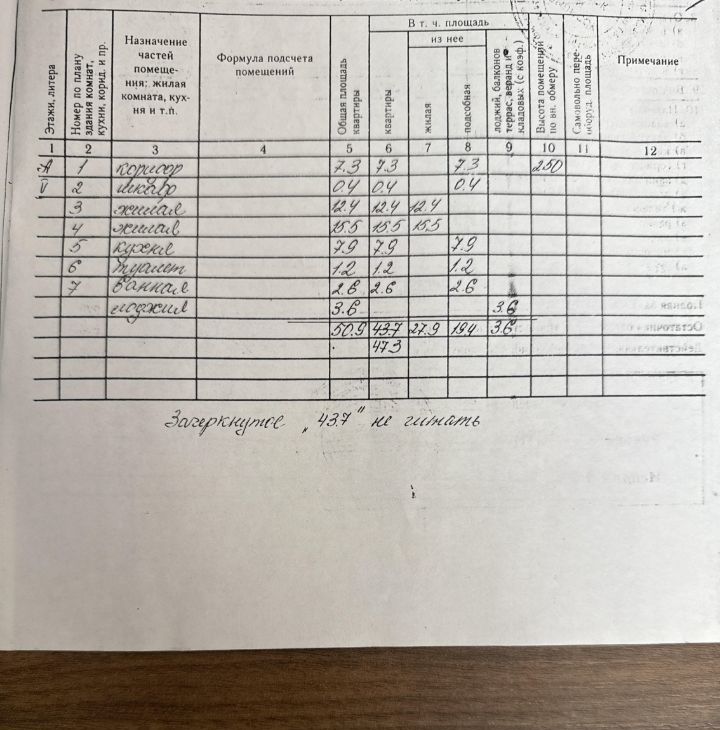 Этажи, литера
Номер по плану здания комнат, кухни, корид. и пр.
Назначение частей помеще-ния: жилая комната, кух-ня и т.п.
Формула подсчета помещений
Общая площадь квартиры
В т. ч. площадь
квартиры
из нее
жилая
подсобная
лоджий, балконов террас, веранд и кладовых (с коэф.)
Высота помещений по вн. обмеру
Самовольно пере-оборуд. площадь
Примечание
1 2 3 4 5 6 7 8 9 10 11 12
A 1 коридор 7.3 7.3 7.3 250
V 2 шкаф 0.4 0.4 0.4
3 жилая 12.4 12.4 12.4
4 жилая 15.5 15.5 15.5
5 кухня 7.9 7.9 7.9
6 туалет 1.2 1.2 1.2
7 ванная 2.6 2.6 2.6
лоджия 3.6 3.6
50.9 43.7 27.9 19.4 3.6
47.3
Зачеркнутое „43.7" не читать